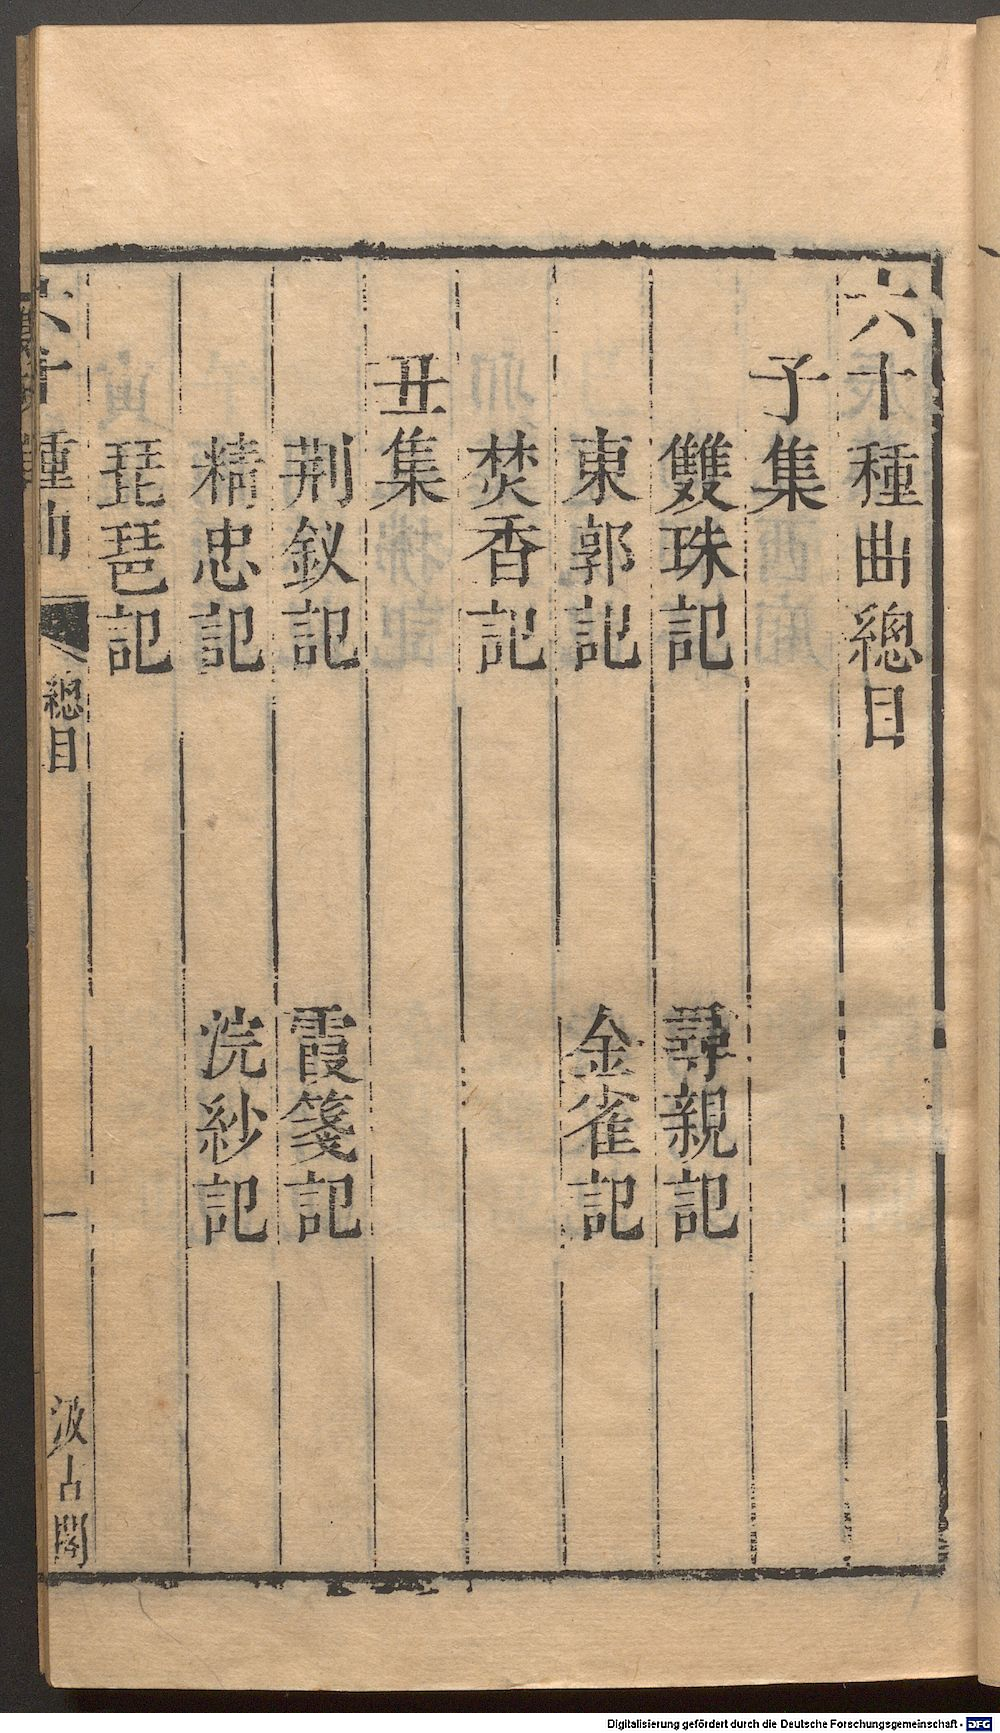 六十種曲總目
子集
雙珠記 尋親記
東郭記 金雀記
焚香記
丑集
荆釵記 霞箋記
精忠記 浣紗記
琵琶記
六十種曲 總目 一 汲古閣
Digitalisierung gefördert durch die Deutsche Forschungsgemeinschaft - DFG